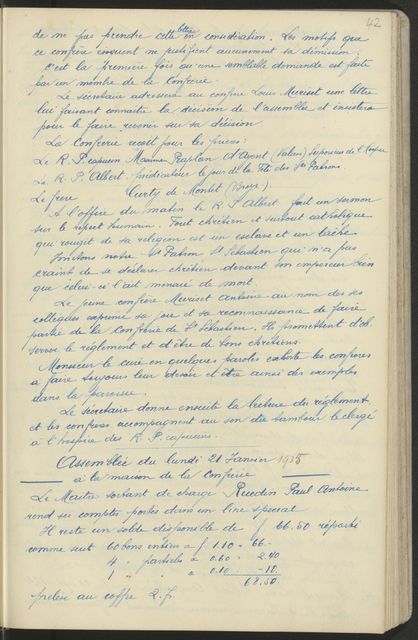 42
de ne pas prendre cette lettre en considération. Les motifs que
ce confrère invoquent ne justifient aucunement sa démission;
c'est la première fois qu'une semblable demande est faite
par un membre de la Confrérie.
Le secrétaire adressera au confrère Louis Muriset une lettre
lui faisant connaître la décision de l'assemblée et insistera
pour le faire revenir sur sa décision
La Confrérie reçoit pour les prières:
Le R. P. capucin d'Avent (Valais) Supérieur de l'Hospice
Le R. P. Albert, prédicateur le jour de la Fête des Sts Patrons.
Le frère Curty de Montet (Broye).
A l'office du matin le R. P. Albert fait un sermon
sur le respect humain. Tout chrétien et surtout catholique
qui rougit de sa religion est un esclave et un lâche.
Imitons notre St Patron St Sébastien qui n'a pas
craint de se déclarer chrétien devant son empereur bien
que celui-ci l'ait menacé de mort.
Le jeune confrère Muriset Antoine au nom de ses
collègues exprime sa joie et sa reconnaissance de faire
partie de la Confrérie de St Sébastien. Ils promettent d'ob-
server le règlement et d'être de bons chrétiens.
Monsieur le curé en quelques paroles exhorte les confrères
à faire toujours leur devoir et être ainsi des exemples
dans la paroisse.
Le Secrétaire donne ensuite la lecture du règlement,
et les confrères accompagnent au son du tambour le clergé
à l'hospice des R. P. capucins.
Assemblée du lundi 21 Janvier 1935
à la maison de la Confrérie
Le Maître sortant de charge Ruedin Paul Antoine
rend ses comptes portés dans un livre spécial
Il reste un solde disponible de f 66.50 réparti
comme suit 60 bons entiers à f 1.10 = 66.-
4 " partiels à 0.60 2.40
1 " " à 0.10 -.10
68.50
prélevé au coffre 2.f.